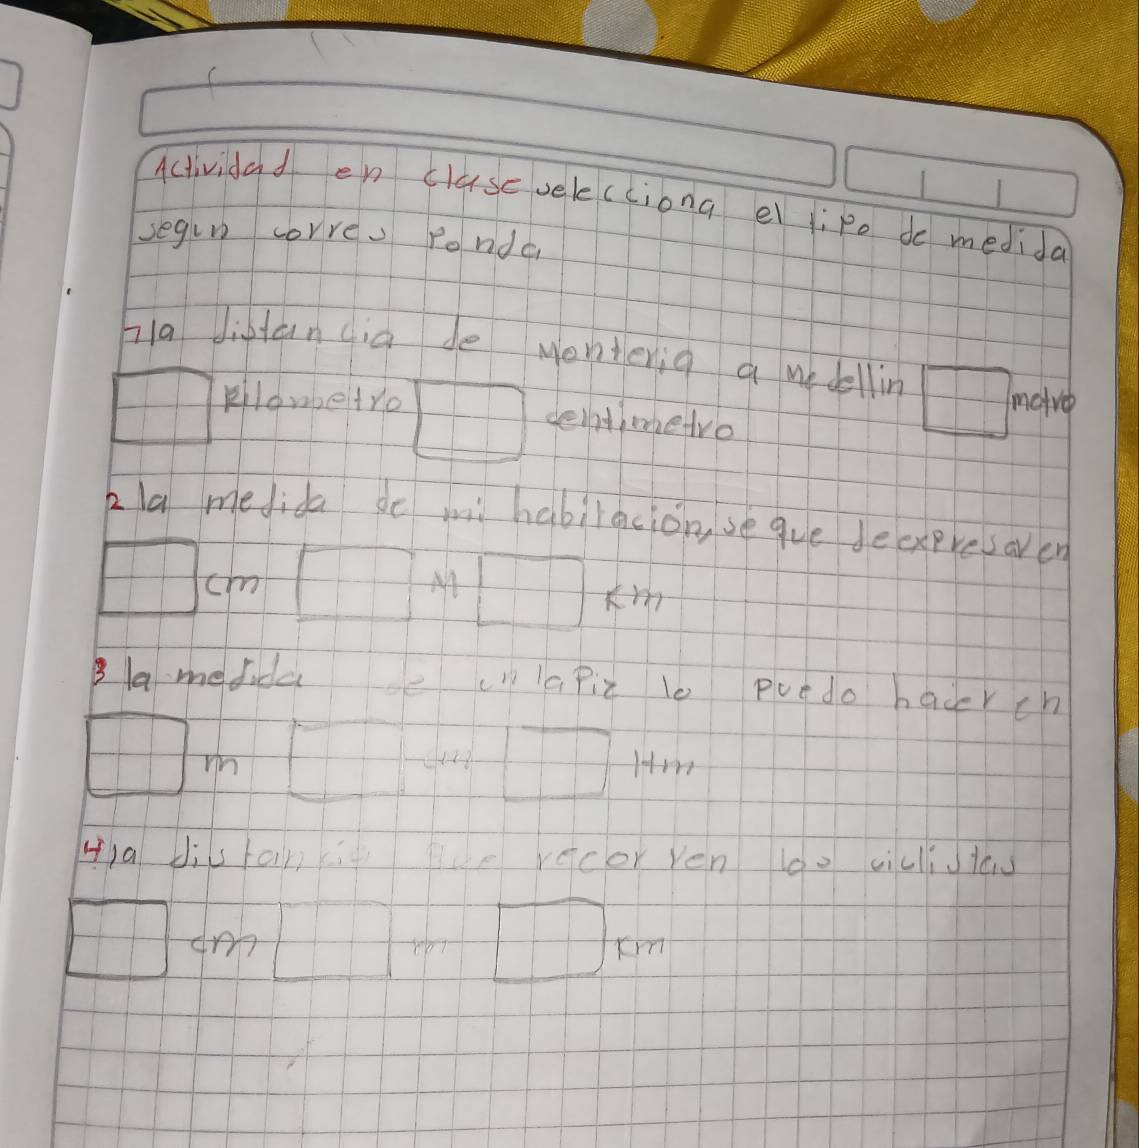 Actividad en clase selecciona el tipo de medida
segun corres ponda
1 la distancia de Monteria a medellin metro
kilometro centimetro
2 la medida de mi habitación, se que de expresar en
cm M km
3 la medida de un lapiz lo puedo hacer en
m cm Hm
4 la distancia que recorren los ciclistas
cm m km